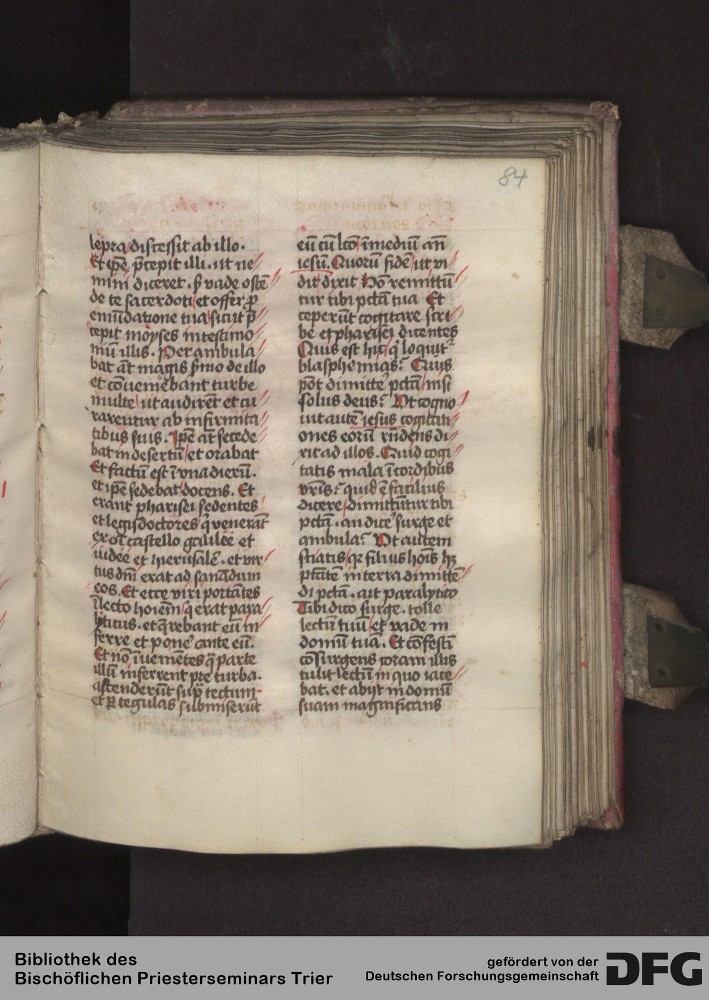 84
lepra discessit ab illo.
Et ip̄e p̄cepit illi. ut ne
mini diceret. s̄ vade ostē
de te sacerdoti et offer p̄
emūdatione tua sicut p̄
cepit moyses in testimo
niū illis. Perambula
bat āt magis s̄mo de illo
et cōveniebant turbe
multe ut audirēt et cu
rarentur ab infirmita
tibus suis. Ip̄e āt secede
bat in desertū et orabat
Et factū est ī vna dierū.
et ip̄e sedebat docens. Et
erant pharisei sedentes
et legisdoctores q̄ venerāt
ex oī castello galilee et
iudee et hierusalē. et vir
tus dn̄i erat ad sanādum
eos. Et ecce viri portātes
ī lecto hoīem q̄ erat para
liticus. et q̄rebant eū in
ferre et pone͛ ante eū.
Et nō īuenientes q̄ parte
illū inferrent pre turba.
ascenderūt sup̄ tectum
et ꝑ tegulas submiserūt
eū cū lc̄o ī mediū an̄
iesū. Quorū fidē ut vi
dit dixit Hō remittū
tur tibi pctā tua Et
ceperūnt cogitare scri
be et pharisei dicentes
Quis est hic q̄ loquit᷑
blasphemias? Quis
pōt dimitte͛ pctā nisi
solus deus? Vt cogno
uit autē iesus cogitati
ones eorū rn̄dens di
xit ad illos. Quid cogi
tatis mala ī cordibus
vr̄is? quid ē facilius
dicere dimittūtur tibi
pctā. an dice͛ surge et
ambula? Vt autem
sciatis qꝛ filius hoīs hꝫ
ptātē in terra dimittē
di pctā. ait paralytico
Tibi dico surge. tolle
lectū tuū et vade in
domū tuā. Et cōfestī
cōsurgens coram illis
tulit lectū in quo iace
bat. et abijt in domū
suam magnificans
Bibliothek des
Bischöflichen Priesterseminars Trier
gefördert von der
Deutschen Forschungsgemeinschaft
DFG